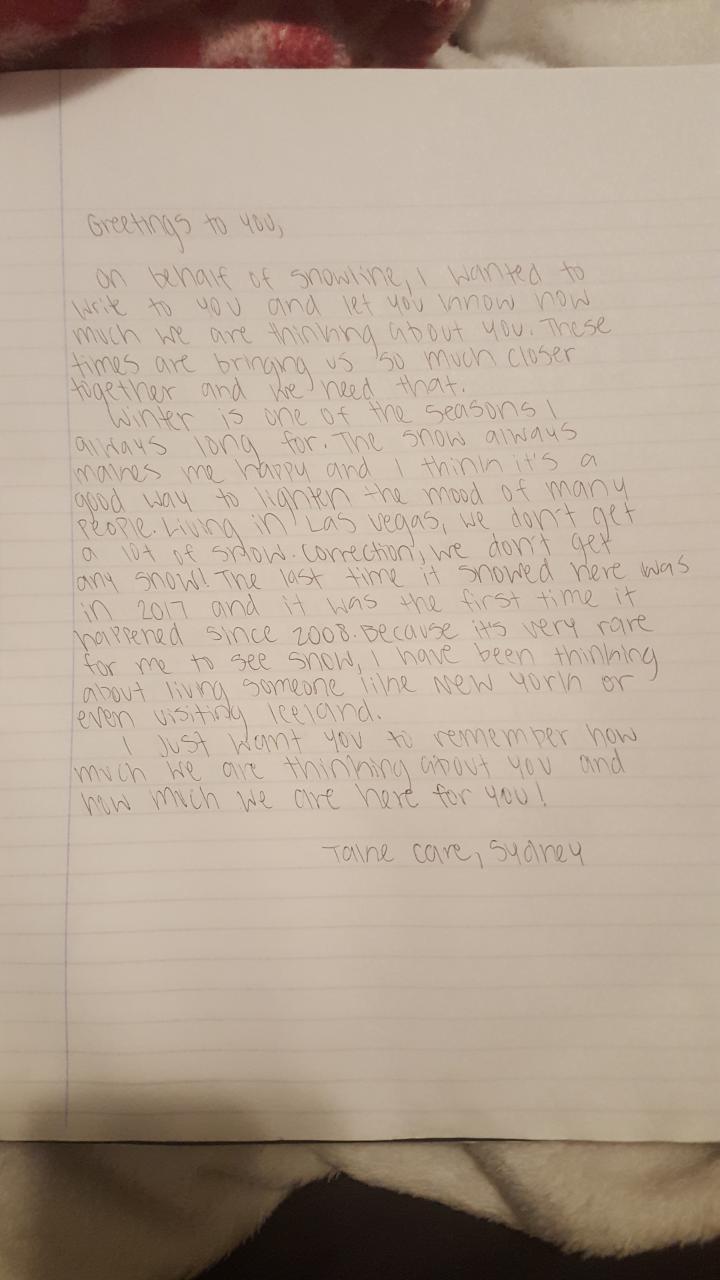 Greetings to you,
On behalf of snowline, I wanted to
write to you and let you know how
much we are thinking about you. These
times are bringing us so much closer
together and we need that.
Winter is one of the seasons I
always long for. The snow always
makes me happy and I think it's a
good way to lighten the mood of many
people. Living in Las Vegas, we don't get
a lot of snow. Correction, we don't get
any snow! The last time it snowed here was
in 2017 and it was the first time it
happened since 2008. Because it's very rare
for me to see snow, I have been thinking
about living someone like New York or
even visiting Iceland.
I just want you to remember how
much we are thinking about you and
how much we are here for you!
Take care, Sydney